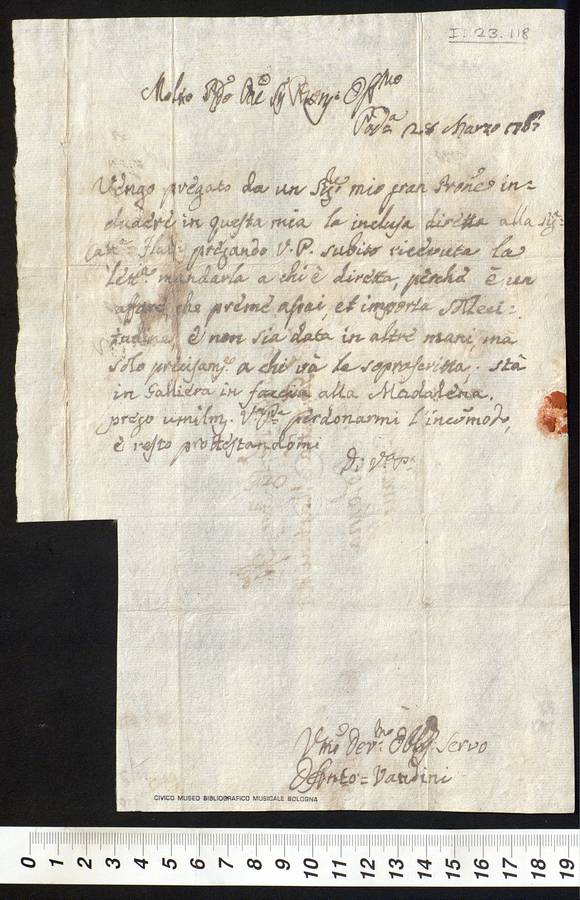 I. 23. 118
Molto Rdo Pre
28 Marzo
Vengo pregato da un Sigre mio gran Prone in=
cludere in questa mia la inclusa diretta alla Sigra
pregando V. P. subito riceputa la
lettra mandarla a chi è diretta, perche è un
affare che preme assai, et importa solleci=
tudine, e non sia data in altre mani, ma
solo precisamte a chi và le soprascritta. stà
in Galliera in faccia alla Madalena.
prego umilmte perdonarmi l'incomodo,
e resto protestandomi
Di V. P.
Umo Devmo Servo
Vandini
CIVICO MUSEO BIBLIOGRAFICO MUSICALE BOLOGNA
0 1 2 3 4 5 6 7 8 9 10 11 12 13 14 15 16 17 18 19